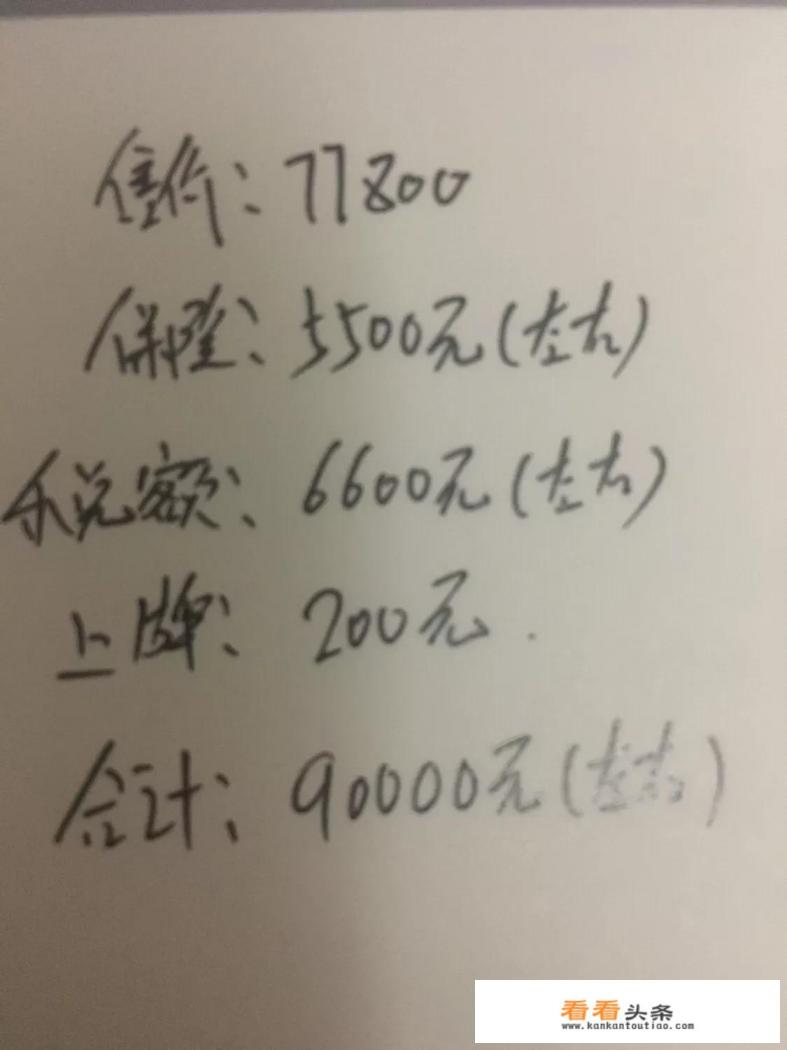 售价：77800
保险：5500元(左右)
税额：6600元(左右)
上牌：200元.
合计：90000元(左右)
看看头条
www.kankantoutiao.com